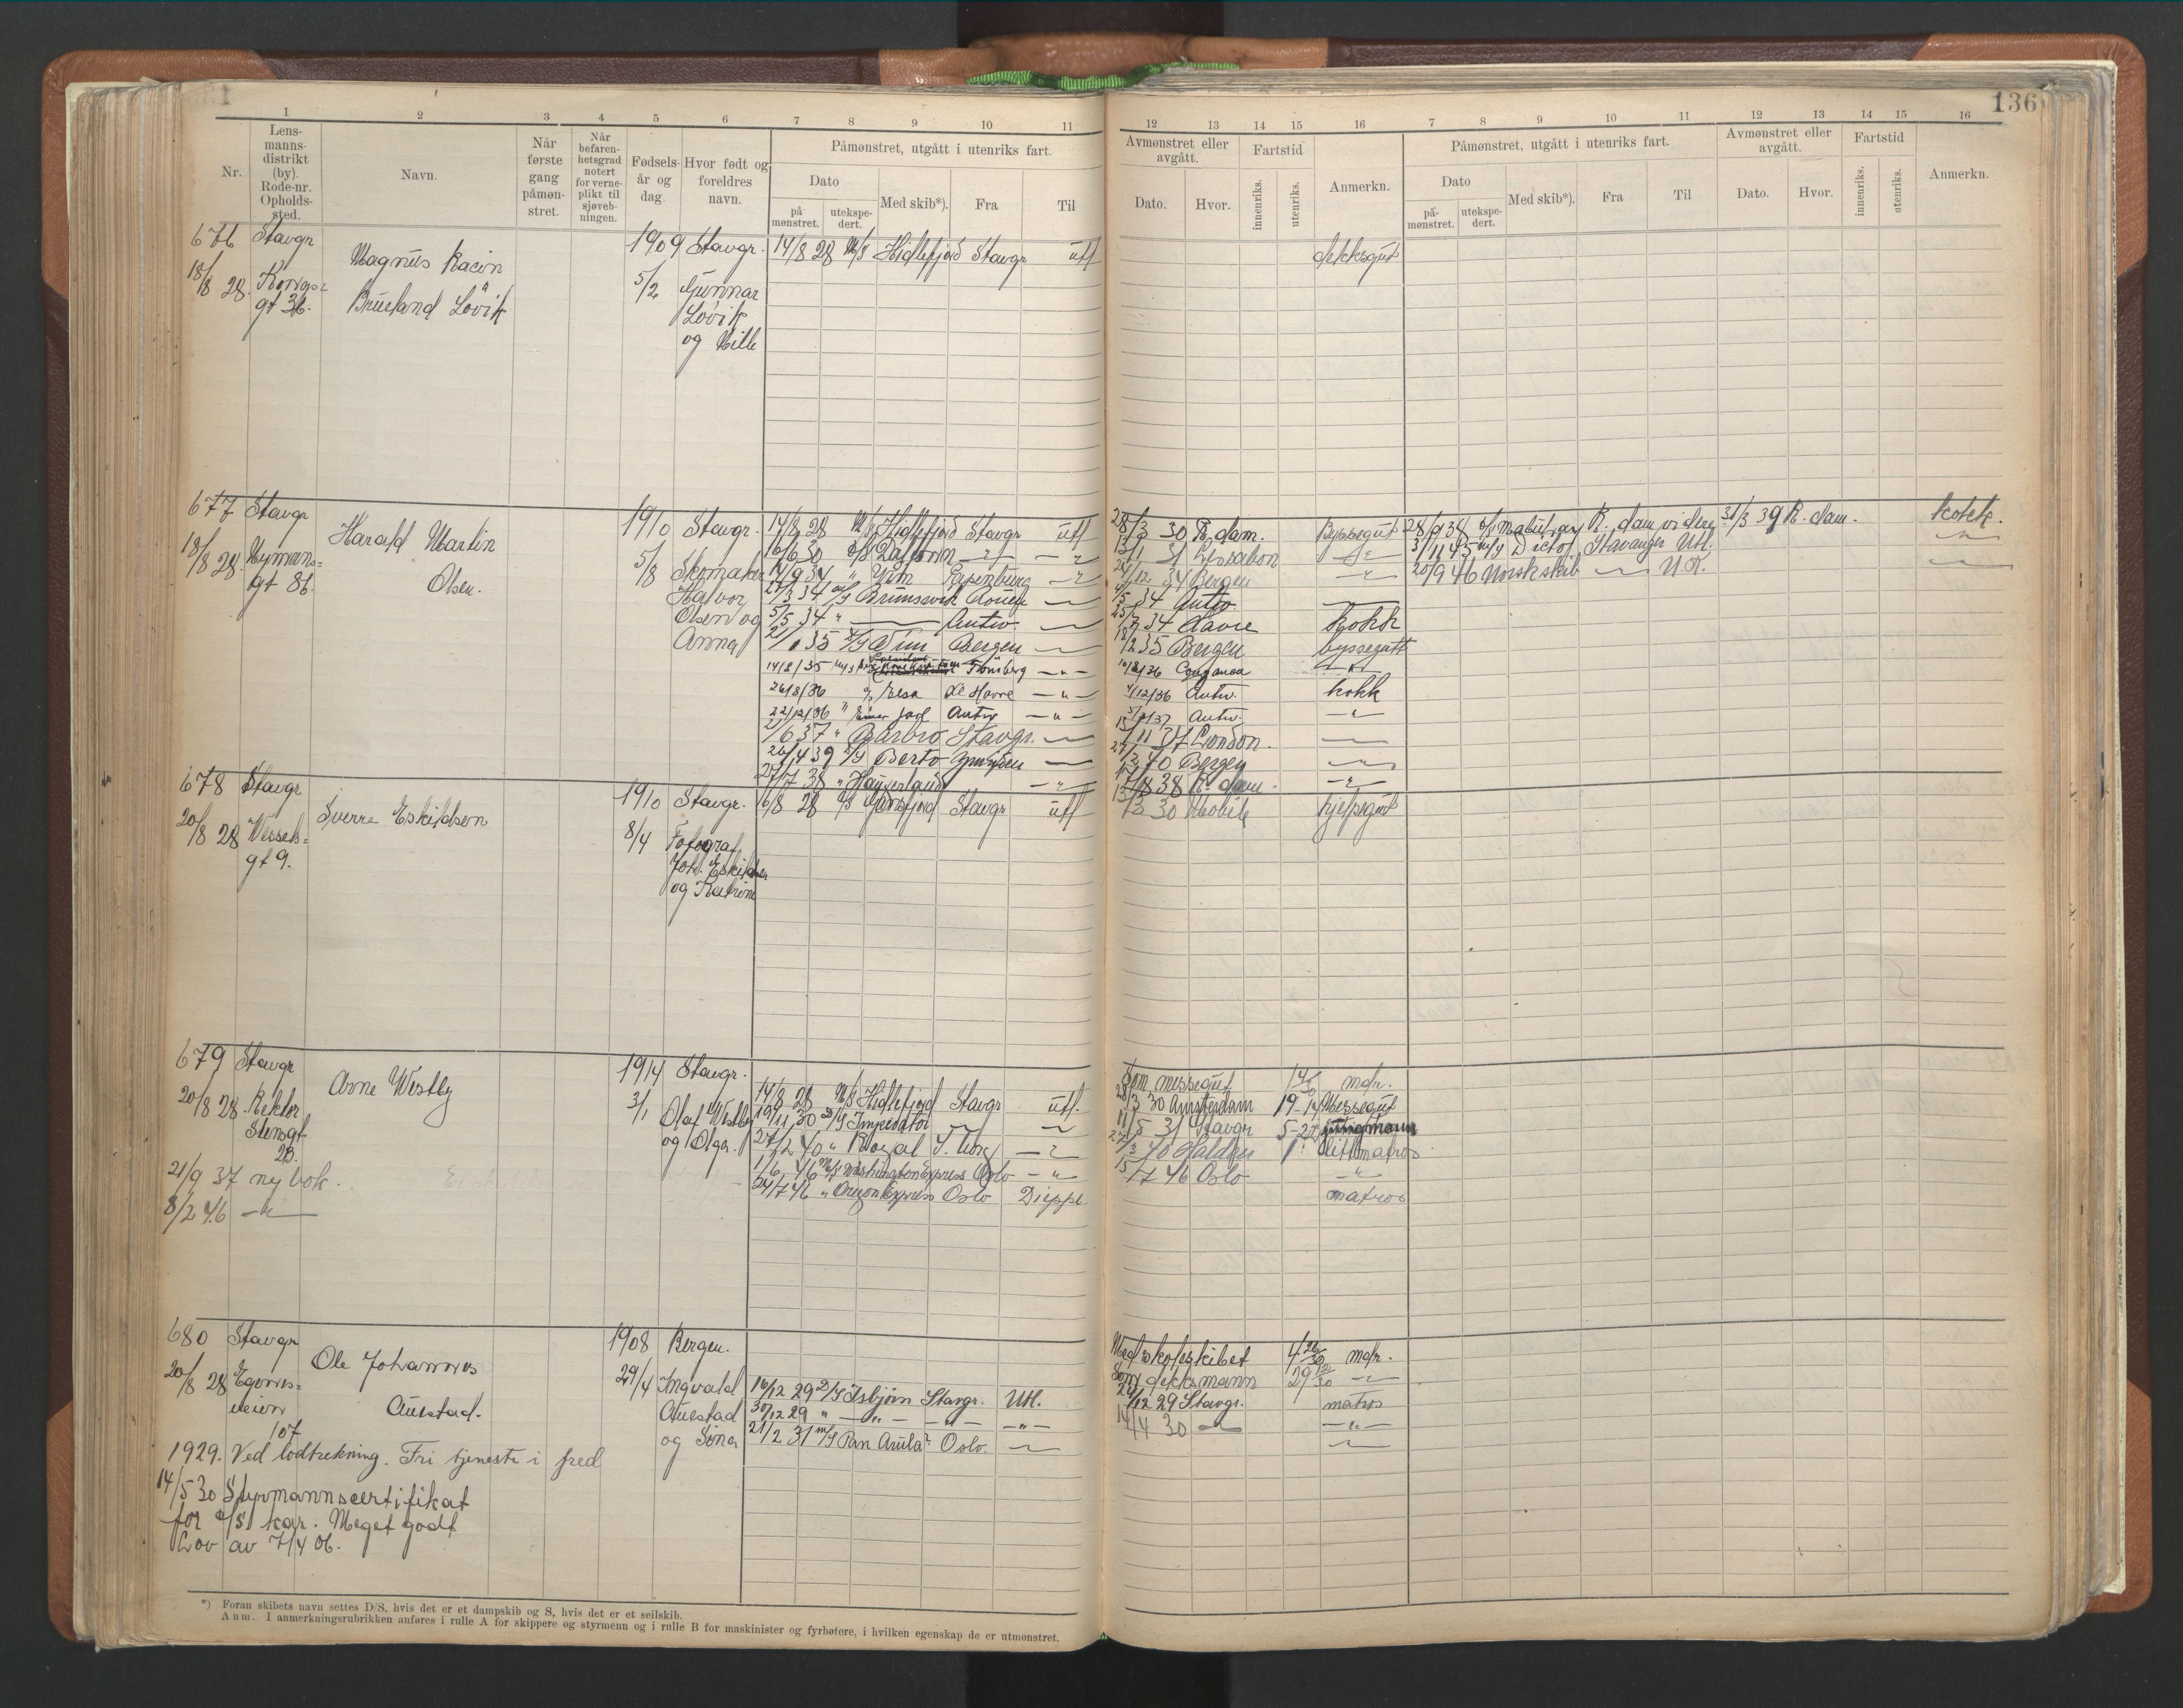 136
1 2 3 4 5 6 7 8 9 10 11
12 13 14 15 16 7 8 9 10 11 12 13 14 15 16
Nr.
Lens-
manns-
distrikt
(by).
Rode-nr.
Opholds-
sted.
Navn.
Når
første
gang
påmøn-
stret.
Når
befaren-
hetsgrad
notert
for verne-
plikt til
sjøveb-
ningen.
Fødsels-
år og
dag
Hvor født og
foreldres
navn.
Påmønstret, utgått i utenriks fart.
Dato
på-
mønstret.
utekspe-
dert.
Med skib*).
Fra
Til
Avmønstret eller
avgått.
Dato.
Hvor.
Fartstid
innenriks.
utenriks.
Anmerkn.
Påmønstret, utgått i utenriks fart.
Dato
på-
mønstret.
utekspe-
dert.
Med skib*).
Fra
Til
Avmønstret eller
avgått.
Dato.
Hvor.
Fartstid
innenriks.
utenriks.
Anmerkn.
676 Stavgr
18/8 28. Kongs=
gt 36.
Magnus
Brueland Løvik
1909 Stavgr.
5/2 Gunnar
Løvik
og Mille
14/8 28 M/S Hidlefjord Stavgr utl
dekksgut
677 Stavgr
18/8 28. Nymans=
gt 86.
Harald Martin
Olsen.
1910 Stavgr.
5/8 Skomaker
Halvor
Olsen og
Anna
14/8 28 M/S Hidlefjord Stavgr utl
28/3 30 R.dam. Byssegut
28/9 38 R.dam videre 31/3 39 R.dam. kokk.
16/6 30
31 Lissabon
3/11 45 M/S Dicto Stavanger Utl.
14/9 34 " Papenburg
34 Bergen
20/9 46 Norsk skib U.K.
34 Brunsvik Rouen
34 Antw.
5/5 34 " Antw.
34 Havre kokk
35 Bergen
35 Bergen byssegutt
14/8/35 Tønsberg
26/8/36 Elsa Le Havre
Antw. kokk
22/12/36 " Einar Jarl Antw
37 Antw.
6 37 " Barbro Stavgr.
11 37 London.
4 39 Berto
40 Bergen
17 38 "
8 38 R.dam.
678 Stavgr
20/8 28 Wessels=
gt 9.
Sverre Eskildsen
1910 Stavgr.
8/4 Fotograf
Joh. Eskildsen
og Katrine
16/8 28 Stavgr utl
30 Mobile hjelpegut
679 Stavgr
20/8 28. Rektor
Stensgt
28.
21/9 37 ny bok.
8/2 46 — " —
Arne Westby
1914 Stavgr.
3/1 Olaf Westby
og Olga.
14/8 28 M/S Hidlefjord Stavgr utl.
19/11 30 D/S Imperator
27/2 40 " Royal
1/6 46 M/S Washington Express Oslo — " —
24/7 46 " Oregon Express Oslo Dieppe
Som messegut 14/30 mdr.
28/3 30 Amsterdam 19-14 Messegut
11/5 31 Stavgr
40 Halden lettmatros
15/7 46 Oslo "
matros
680 Stavgr
20/8 28 Egenes=
veien
107
Ole Johannes
Auestad.
1908 Bergen.
29/4 Ingvald
Auestad
og Sina
16/12 29 D/S Isbjørn Stavgr. Utl.
30/12 29 " — " — — " — — " —
21/2 31 M/S Pan Oslo.
Med skoleskibet 4 26/30 mdr.
Som dekkmann
24/12 29 Stavgr. matros
14/4 30 — " —
1929. Ved lodtrekning. Fri tjeneste i fred
14/5 30 Styrmannscertifikat
for Kar. Meget godt
Lov av 7/4 06.
*) Foran skibets navn settes D/S, hvis det er et dampskib og S, hvis det er et seilskib.
Anm. I anmerkningsrubrikken anføres i rulle A for skippere og styrmenn og i rulle B for maskinister og fyrbøtere, i hvilken egenskap de er utmønstret.